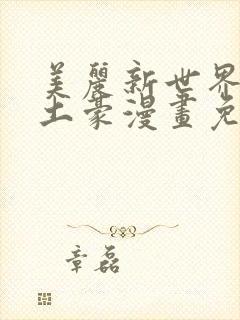 美麗新世界
土豪漫畫免
章磊